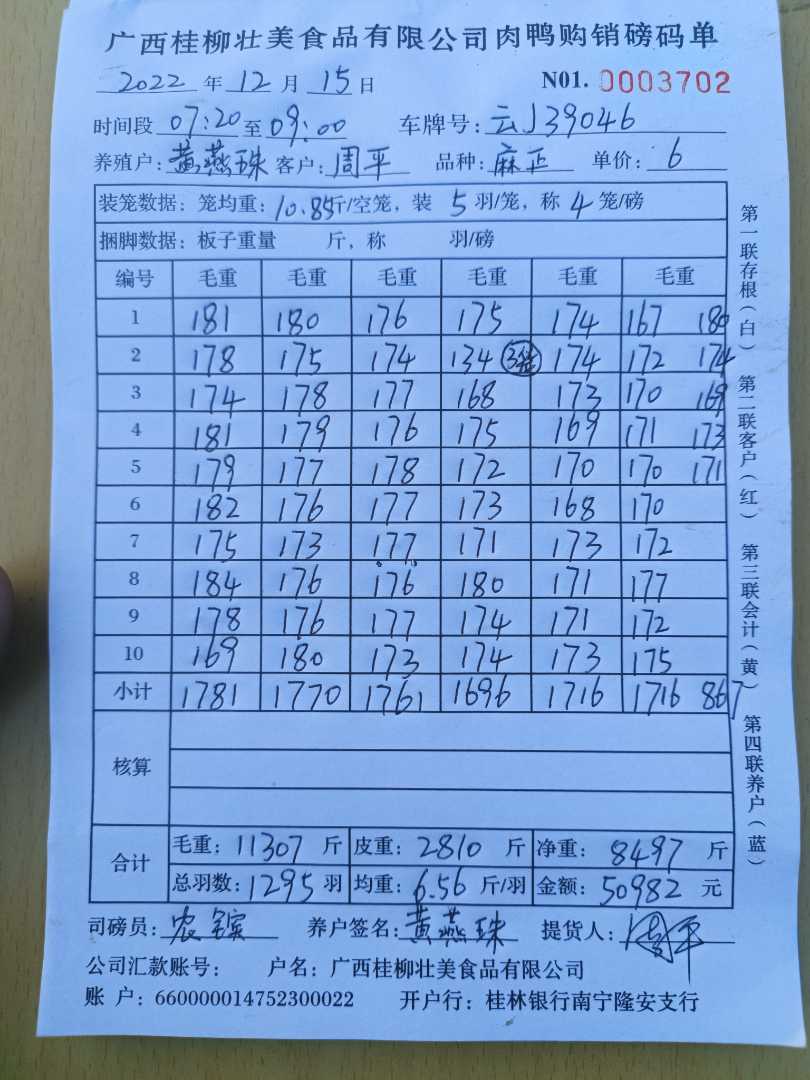 广西桂柳壮美食品有限公司肉鸭购销磅码单
2022 年 12 月 15 日 N01. 0003702
时间段 07:20 至 09:00 车牌号: 云J39046
养殖户: 黄燕珠 客户: 周平 品种: 麻正 单价: 6
装笼数据: 笼均重: 10.85 斤/空笼, 装 5 羽/笼, 称 4 笼/磅
捆脚数据: 板子重量 斤, 称 羽/磅
编号 毛重 毛重 毛重 毛重 毛重 毛重
1 181 180 176 175 174 167 180
2 178 175 174 134 3笼 174 172 174
3 174 178 177 168 173 170 169
4 181 179 176 175 169 171 173
5 179 177 178 172 170 170 171
6 182 176 177 173 168 170
7 175 173 177 171 173 172
8 184 176 176 180 171 177
9 178 176 177 174 171 172
10 169 180 173 174 173 175
小计 1781 1770 1761 1696 1716 1716 867
核算
合计 毛重: 11307 斤 皮重: 2810 斤 净重: 8497 斤
总羽数: 1295 羽 均重: 6.56 斤/羽 金额: 50982 元
司磅员: 农镔 养户签名: 黄燕珠 提货人: 周平
公司汇款账号: 户名: 广西桂柳壮美食品有限公司
账 户: 660000014752300022 开户行: 桂林银行南宁隆安支行
第一联存根(白) 第二联客户(红) 第三联会计(黄) 第四联养户(蓝)